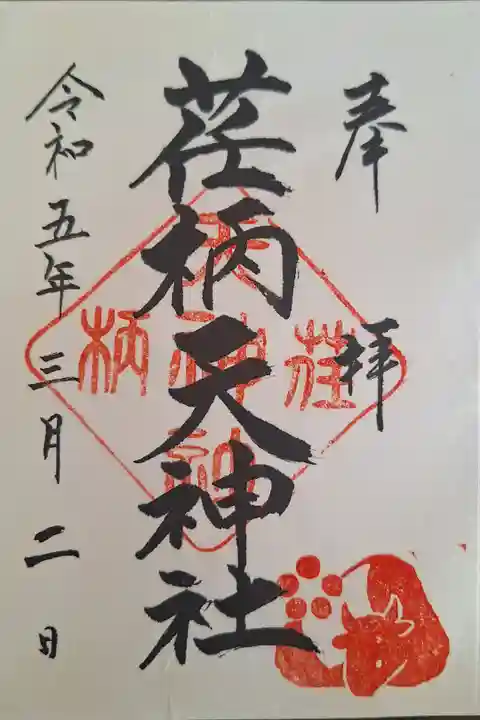 奉拝
荏柄天神社
令和五年三月二日
荏柄天神社